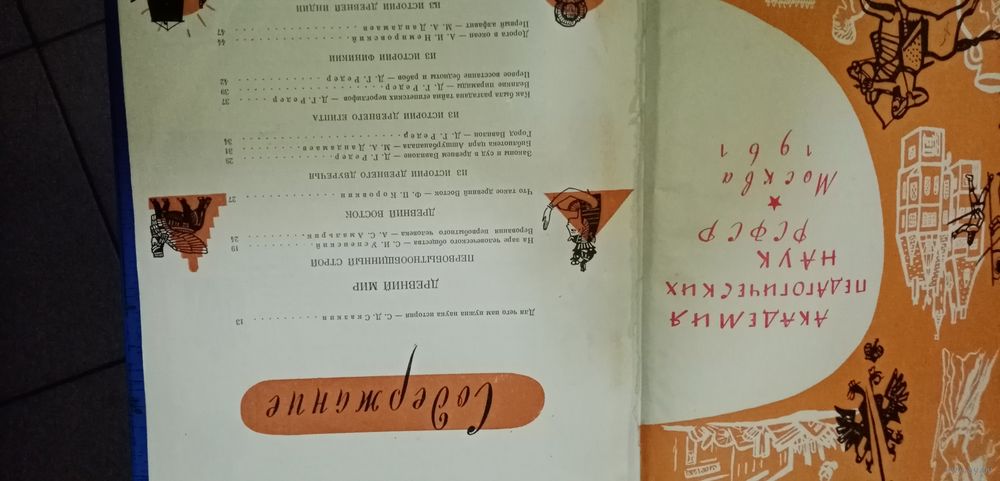 АКАДЕМИЯ
ПЕДАГОГИЧЕСКИХ
НАУК
РСФСР
★
Москва
1961
Содержание
Для чего нам нужна наука история — С. Д. Сказкин . . . . . . . . . . 13
ДРЕВНИЙ МИР
ПЕРВОБЫТНООБЩИННЫЙ СТРОЙ
На заре человеческого общества — С. И. Успенский . . . . . . . . . . 19
Верования первобытного человека — А. С. Амальрик . . . . . . . . . . 24
ДРЕВНИЙ ВОСТОК
Что такое древний Восток — Ф. П. Коровкин . . . . . . . . . . 27
ИЗ ИСТОРИИ ДРЕВНЕГО ДВУРЕЧЬЯ
Законы и суд в древнем Вавилоне — Д. Г. Редер . . . . . . . . . . 29
Библиотека царя Ашшурбанапала — М. А. Дандамаев . . . . . . . . . . 31
Город Вавилон — Д. Г. Редер . . . . . . . . . . 34
ИЗ ИСТОРИИ ДРЕВНЕГО ЕГИПТА
Как была разгадана тайна египетских иероглифов — Д. Г. Редер . . . . . 37
Великие пирамиды — Д. Г. Редер . . . . . . . . . . 39
Первое восстание бедноты и рабов — Д. Г. Редер . . . . . . . . . . 42
ИЗ ИСТОРИИ ФИНИКИИ
Дорога в океан — А. И. Немировский . . . . . . . . . . 44
Первый алфавит — М. А. Дандамаев . . . . . . . . . . 47
ИЗ ИСТОРИИ ДРЕВНЕЙ ИНДИИ